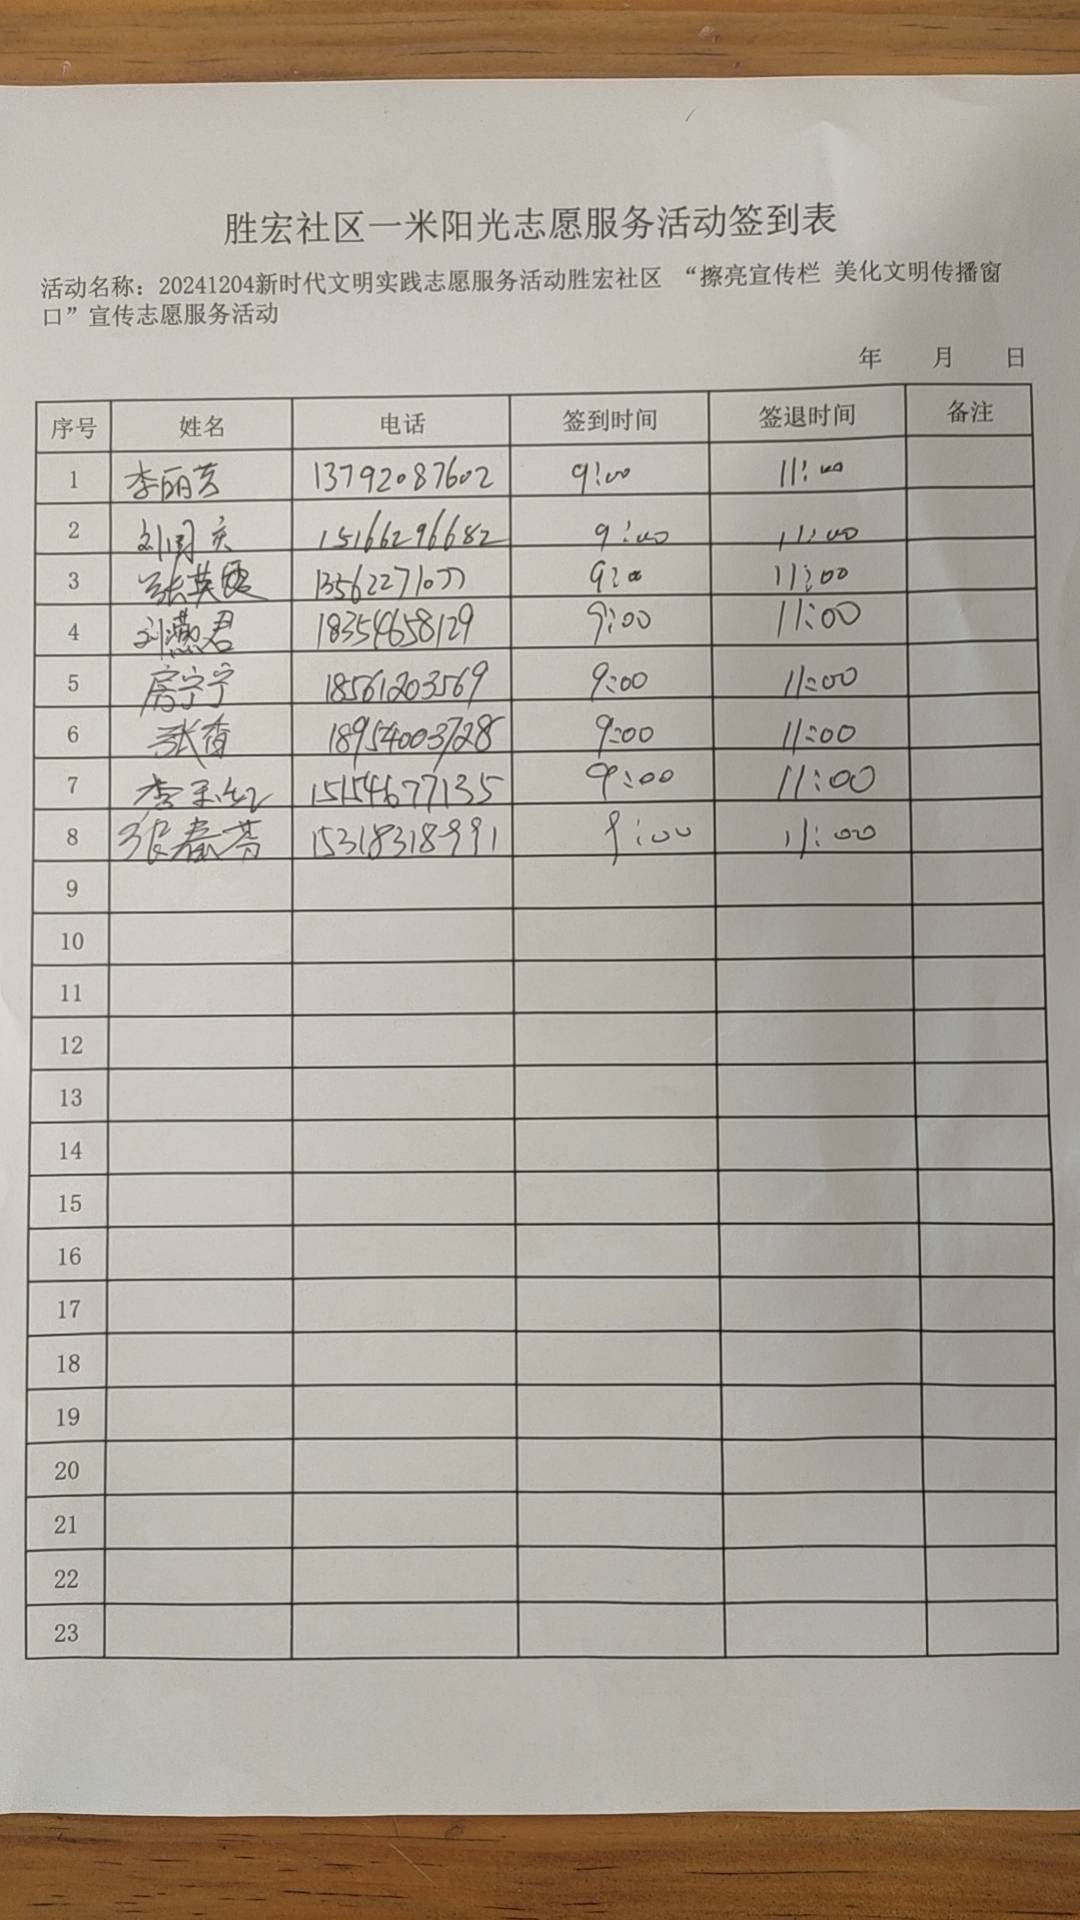 胜宏社区一米阳光志愿服务活动签到表
活动名称：20241204新时代文明实践志愿服务活动胜宏社区 “擦亮宣传栏 美化文明传播窗
口”宣传志愿服务活动
年 月 日
序号 姓名 电话 签到时间 签退时间 备注
1 李丽芳 13792087602 9:00 11:00
2 15166296682 9:00 11:00
3 张英霞 9:00 11:00
4 刘燕君 18354658129 9:00 11:00
5 房宁宁 18561203569 9:00 11:00
6 18954003728 9:00 11:00
7 李玉红 15154677135 9:00 11:00
8 15318318991 9:00 11:00
9
10
11
12
13
14
15
16
17
18
19
20
21
22
23